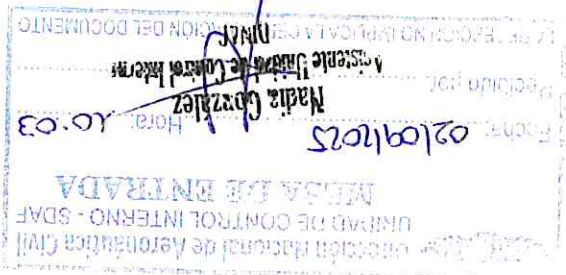 Dirección Nacional de Aeronáutica Civil
UNIDAD DE CONTROL INTERNO - SDAF
MESA DE ENTRADA
Fecha: 02/09/2025 Hora: 10:03
Recibido por:
Nadia González
Asistente Unidad de Control Interno
DINAC
LA RECEPCIÓN NO IMPLICA LA ACEPTACIÓN DEL DOCUMENTO